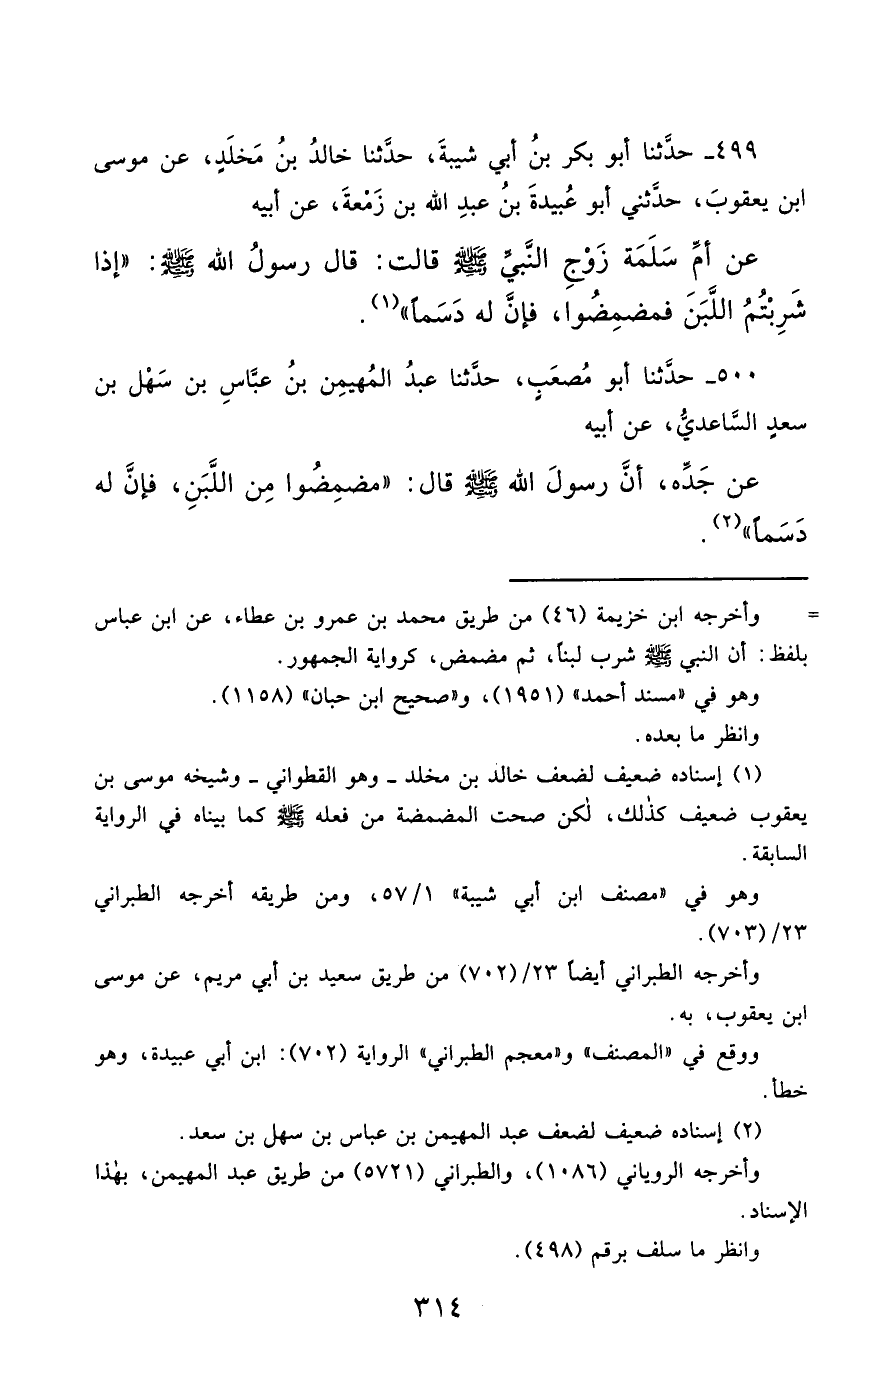 ٤٩٩ـ حدَّثنا أبو بكر بنُ أبي شيبةَ، حدَّثنا خالدُ بنُ مَخلَدٍ، عن موسى
ابن يعقوبَ، حدَّثني أبو عُبيدةَ بنُ عبدِ الله بن زَمْعةَ، عن أبيه
عن أمِّ سَلَمَة زَوْجِ النَّبيِّ ﷺ قالت: قال رسولُ الله ﷺ: «إذا
شَرِبْتُمُ اللَّبَنَ فمضمِضُوا، فإنَّ له دَسَماً»(١).
٥٠٠ـ حدَّثنا أبو مُصعَبٍ، حدَّثنا عبدُ المُهيمِن بنُ عبَّاسِ بن سَهْل بن
سعدٍ السَّاعديُّ، عن أبيه
عن جَدِّه، أنَّ رسولَ الله ﷺ قال: «مضمِضُوا مِن اللَّبَنِ، فإنَّ له
دَسَماً»(٢).
= وأخرجه ابن خزيمة (٤٦) من طريق محمد بن عمرو بن عطاء، عن ابن عباس
بلفظ: أن النبي ﷺ شرب لبناً، ثم مضمض، كرواية الجمهور.
وهو في «مسند أحمد» (١٩٥١)، و«صحيح ابن حبان» (١١٥٨).
وانظر ما بعده.
(١) إسناده ضعيف لضعف خالد بن مخلد ـ وهو القطواني ـ وشيخه موسى بن
يعقوب ضعيف كذٰلك، لٰكن صحت المضمضة من فعله ﷺ كما بيناه في الرواية
السابقة.
وهو في «مصنف ابن أبي شيبة» ٥٧/١، ومن طريقه أخرجه الطبراني
٢٣/(٧٠٣).
وأخرجه الطبراني أيضاً ٢٣/(٧٠٢) من طريق سعيد بن أبي مريم، عن موسى
ابن يعقوب، به.
ووقع في «المصنف» و«معجم الطبراني» الرواية (٧٠٢): ابن أبي عبيدة، وهو
خطأ.
(٢) إسناده ضعيف لضعف عبد المهيمن بن عباس بن سهل بن سعد.
وأخرجه الروياني (١٠٨٦)، والطبراني (٥٧٢١) من طريق عبد المهيمن، بهٰذا
الإسناد.
وانظر ما سلف برقم (٤٩٨).
٣١٤